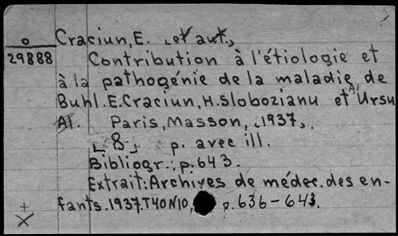 o Craciun, E. [et aut.],
29888 Contribution à l'étiologie et
à la pathogénie de la maladie de
Buhl. E. Craciun, H. Slobozianu et A. Ursu
A. Paris, Masson, [1937],
[8] p. avec ill.
Bibliogr.: p. 643.
Extrait: Archives de médec. des en-
fants. 1937. T40N10, p. 636-643.
+
X